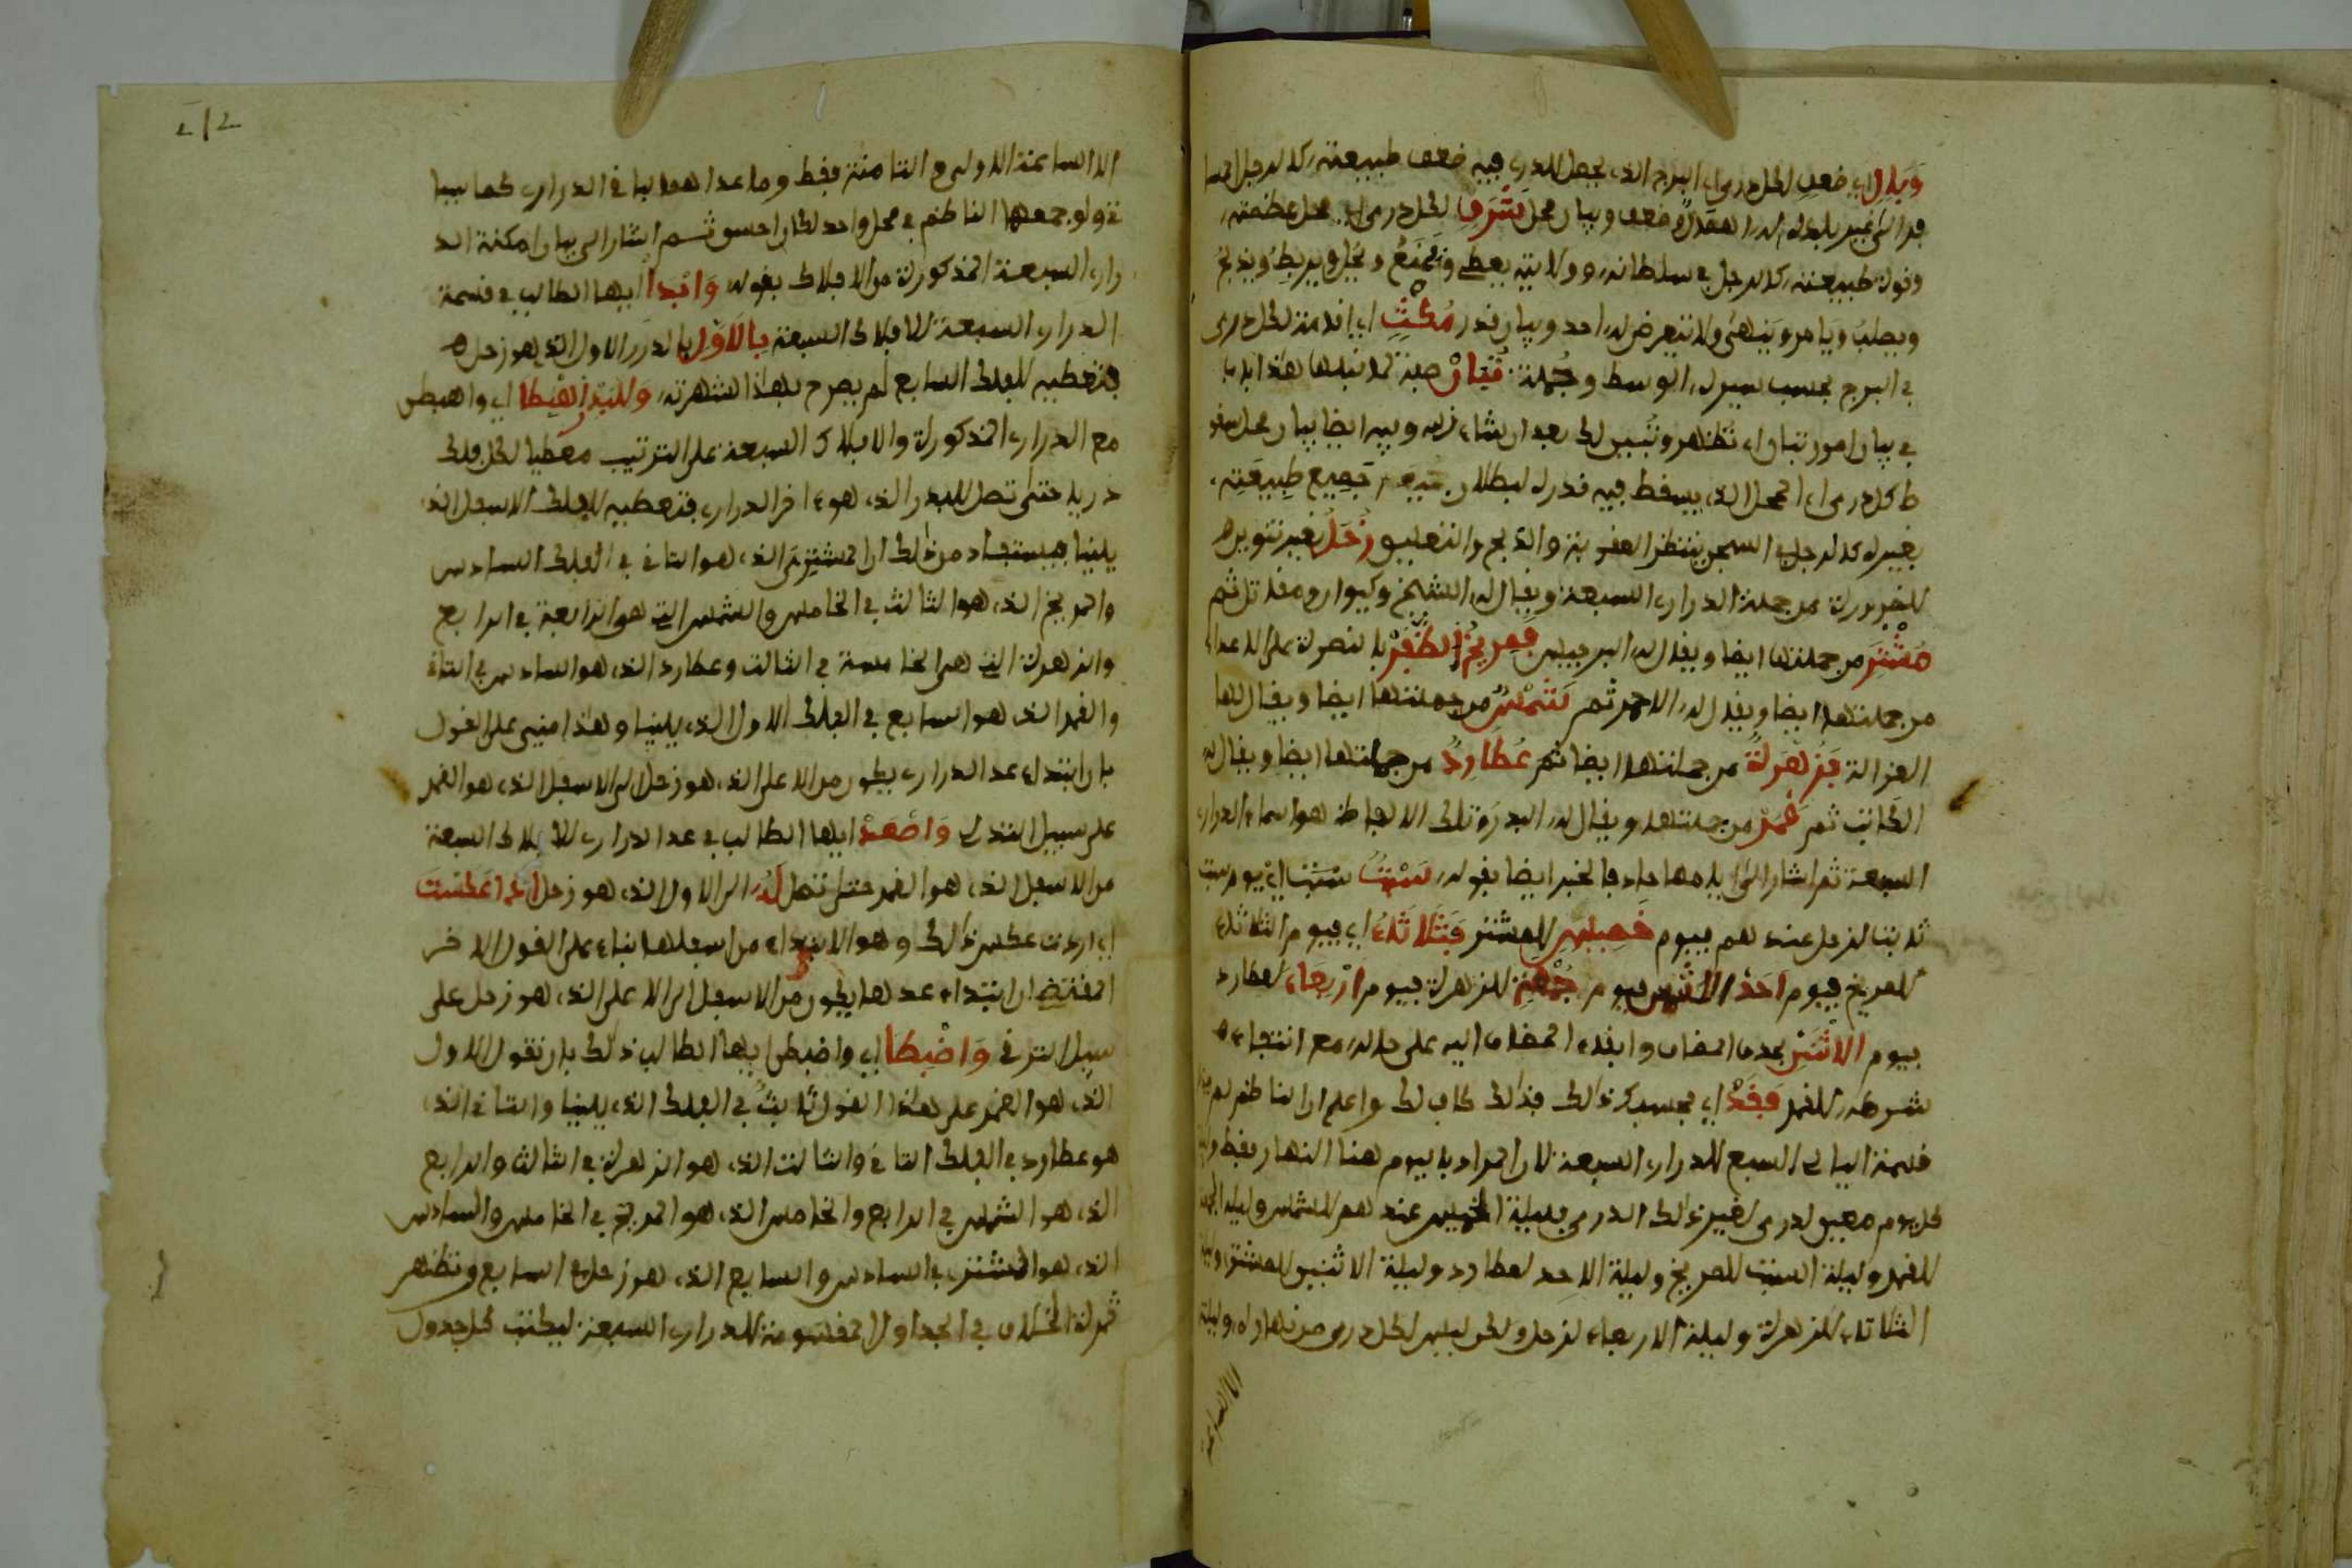 وبال اي ضعف لكل دري اي البرج الذي يحصل للدري فيه ضعف طبيعته كالرجل
وقوة طبيعته كالرجل في سلطانه وولايته يعطي ويمنع ويحل ويربط
ويطلب ويامر وينهى ولا يتعرض له احد وبيان قدر مكث اي اقامته لكل دري
في البرج بحسب سيره الوسط وجملة تبان صفة لما قبلها
في بيان امور تبان اي تظهر وتبين لك بعد ان شاء الله وبيه ايضا بيان محل سقو
ط كل دري اي المحل الذي يسقط فيه قدره لبطلان جميع طبيعته
بغيره كالرجل في السجن ينتظر العقوبة والذبح والتغليق زحل بغير تنوين
للضرورة من جملة الدراري السبعة ويقال له الشيخ وكيوان ومقاتل ثم
مشتر من جملتها ايضا ويقال له البرجيس فمريخ الظفر بالنصرة على الاعداء
من جملتها ايضا ويقال له الاحمر ثم شمس من جملتها ايضا ويقال لها
الغزالة فزهرة من جملتها ايضا ثم عطارد من جملتها ايضا ويقال له
الكاتب ثم قمر من جملتها ويقال له البدر وتلك الالفاظ هو اسماء الدراري
السبعة ثم اشار الى ايامها حاذفا لخبر ايضا بقوله سبت سبت اي يوم سبت
ثابت لزحل عندهم فيوم خميس للمشتر فثلاثاء اي فيوم الثلاثاء
للمريخ فيوم احد للشمس فيوم جمعة للزهرة فيوم اربعاء لعطارد
فيوم الاثنين بحذف المضاف وابقاء المضاف اليه على حاله مع انتفاء
شرطه للقمر فقد اي فحسبك ذالك فذالك كاف لك واعلم ان الناظم لم
قسمة اليالي السبع للدراري السبعة لان المراد باليوم هنا النهار فقط
كل يوم معين لدري لغير ذالك الدري فليلة الخميس عندهم للشمس وليلة الجمعة
للقمر وليلة السبت للمريخ وليلة الاحد لعطارد وليلة الاثنين للمشتر وليلة
الثلاثاء للزهرة وليلة الاربعاء لزحل ولكن ليس لكل دري من نهاره وليلته
الا الساعة
212
الا الساعة الاولى والثامنة فقط وما عداهما لباقي الدراري كما سيا
تي ولو جمعها الناظم في محل واحد لكان احسن ثم اشار الى بيان امكنة الد
راري السبعة المذكورة من الافلاك بقوله وابدا ايها الطالب في قسمة
الدراري السبعة للافلاك السبعة بالاول بالدري الاول الذي هو زحل
فتعطيه للفلك السابع لم يصرح بهذا لشهرته وللبدر اهبطا اي واهبطن
مع الدراري المذكورة والافلاك السبعة على الترتيب معطيا لكل فلك
دريا حتى تصل للبدر الذي هو ءاخر الدراري فتعطيه للفلك الاسفل الذي
يلينا فيستفاد من ذالك ان المشتري الذي هو الثاني في الفلك السادس
والمريخ الذي هو الثالث في الخامس والشمس التي هو الرابعة في الرابع
والزهرة التي هي الخامسة في الثالث وعطارد الذي هو السادس في الثاني
والقمر الذي هو السابع في الفلك الاول الذي يلينا وهذا مبني على القول
بان ابتداء عد الدراري يكون من الاعلى الذي هو زحل الى الاسفل الذي هو القمر
على سبيل التدلي واصعد ايها الطالب في عد الدراري للافلاك السبعة
من الاسفل الذي هو القمر حتى تصل له الى الاول الذي هو زحل اذا عكست
اي اردت عكس ذالك وهو الابتداء من اسفلها بناء على القول الاخر
المقتضي ان ابتداء عدها يكون من الاسفل الى الاعلى الذي هو زحل على
سبيل الترقي واضبطا اي واضبطن ايها الطالب ذالك بان تقول الاول
الذي هو القمر على هذا القول ثابت في الفلك الذي يلينا والثاني الذي
هو عطارد في الفلك الثاني والثالث الذي هو الزهرة في الثالث والرابع
الذي هو الشمس في الرابع والخامس الذي هو المريخ في الخامس والسادس
الذي هو المشتري في السادس والسابع الذي هو زحل في السابع وتظهر
ثمرة الخلاف في الجداول المقسومة للدراري السبعة ليكتب كل جدول